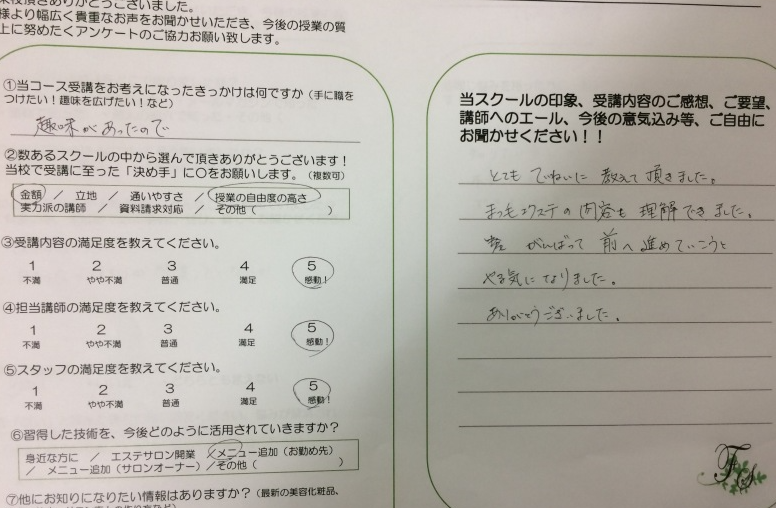 様より幅広く貴重なお声をお聞かせいただき、今後の授業の質
上に努めたくアンケートのご協力お願い致します。
①当コース受講をお考えになったきっかけは何ですか(手に職を
つけたい！趣味を広げたい！など)
趣味があったので
②数あるスクールの中から選んで頂きありがとうございます！
当校で受講に至った「決め手」に○をお願いします。(複数可)
金額 / 立地 / 通いやすさ / 授業の自由度の高さ
実力派の講師 / 資料請求対応 / その他( )
③受講内容の満足度を教えてください。
1 2 3 4 5
不満 やや不満 普通 満足 感動！
④担当講師の満足度を教えてください。
1 2 3 4 5
不満 やや不満 普通 満足 感動！
⑤スタッフの満足度を教えてください。
1 2 3 4 5
不満 やや不満 普通 満足 感動！
⑥習得した技術を、今後どのように活用されていきますか？
身近な方に / エステサロン開業 /メニュー追加(お勤め先)
/ メニュー追加(サロンオーナー) /その他( )
⑦他にお知りになりたい情報はありますか？(最新の美容化粧品、
当スクールの印象、受講内容のご感想、ご要望、
講師へのエール、今後の意気込み等、ご自由に
お聞かせください！！
とてもていねいに教えて頂きました。
まつ毛エクステの内容も理解できました。
がんばって前へ進めていこうと
やる気になりました。
ありがとうございました。